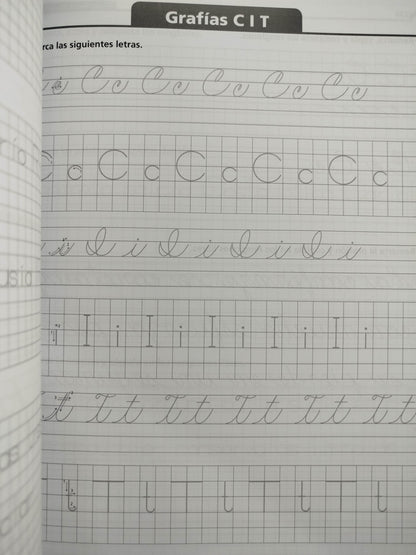 Grafías C I T
rca las siguientes letras.
c C c C c C c C c C c
C c C c C c C c C c C c
i I i I i I i I i
i I i I i I i I i I i
t T t T t T t T t T t
t T t T t T t T t T t